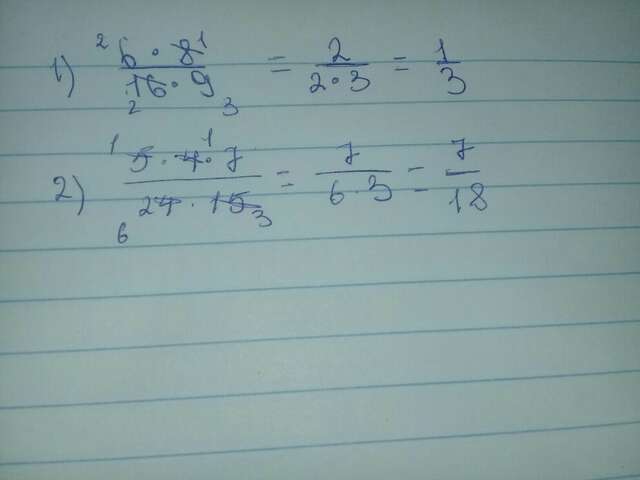 1) ²6 · 8¹ / 16₂ · 9₃ = 2 / 2·3 = 1/3
2) ¹5 · 4¹ · 7 / 24₆ · 15₃ = 7 / 6·3 = 7/18